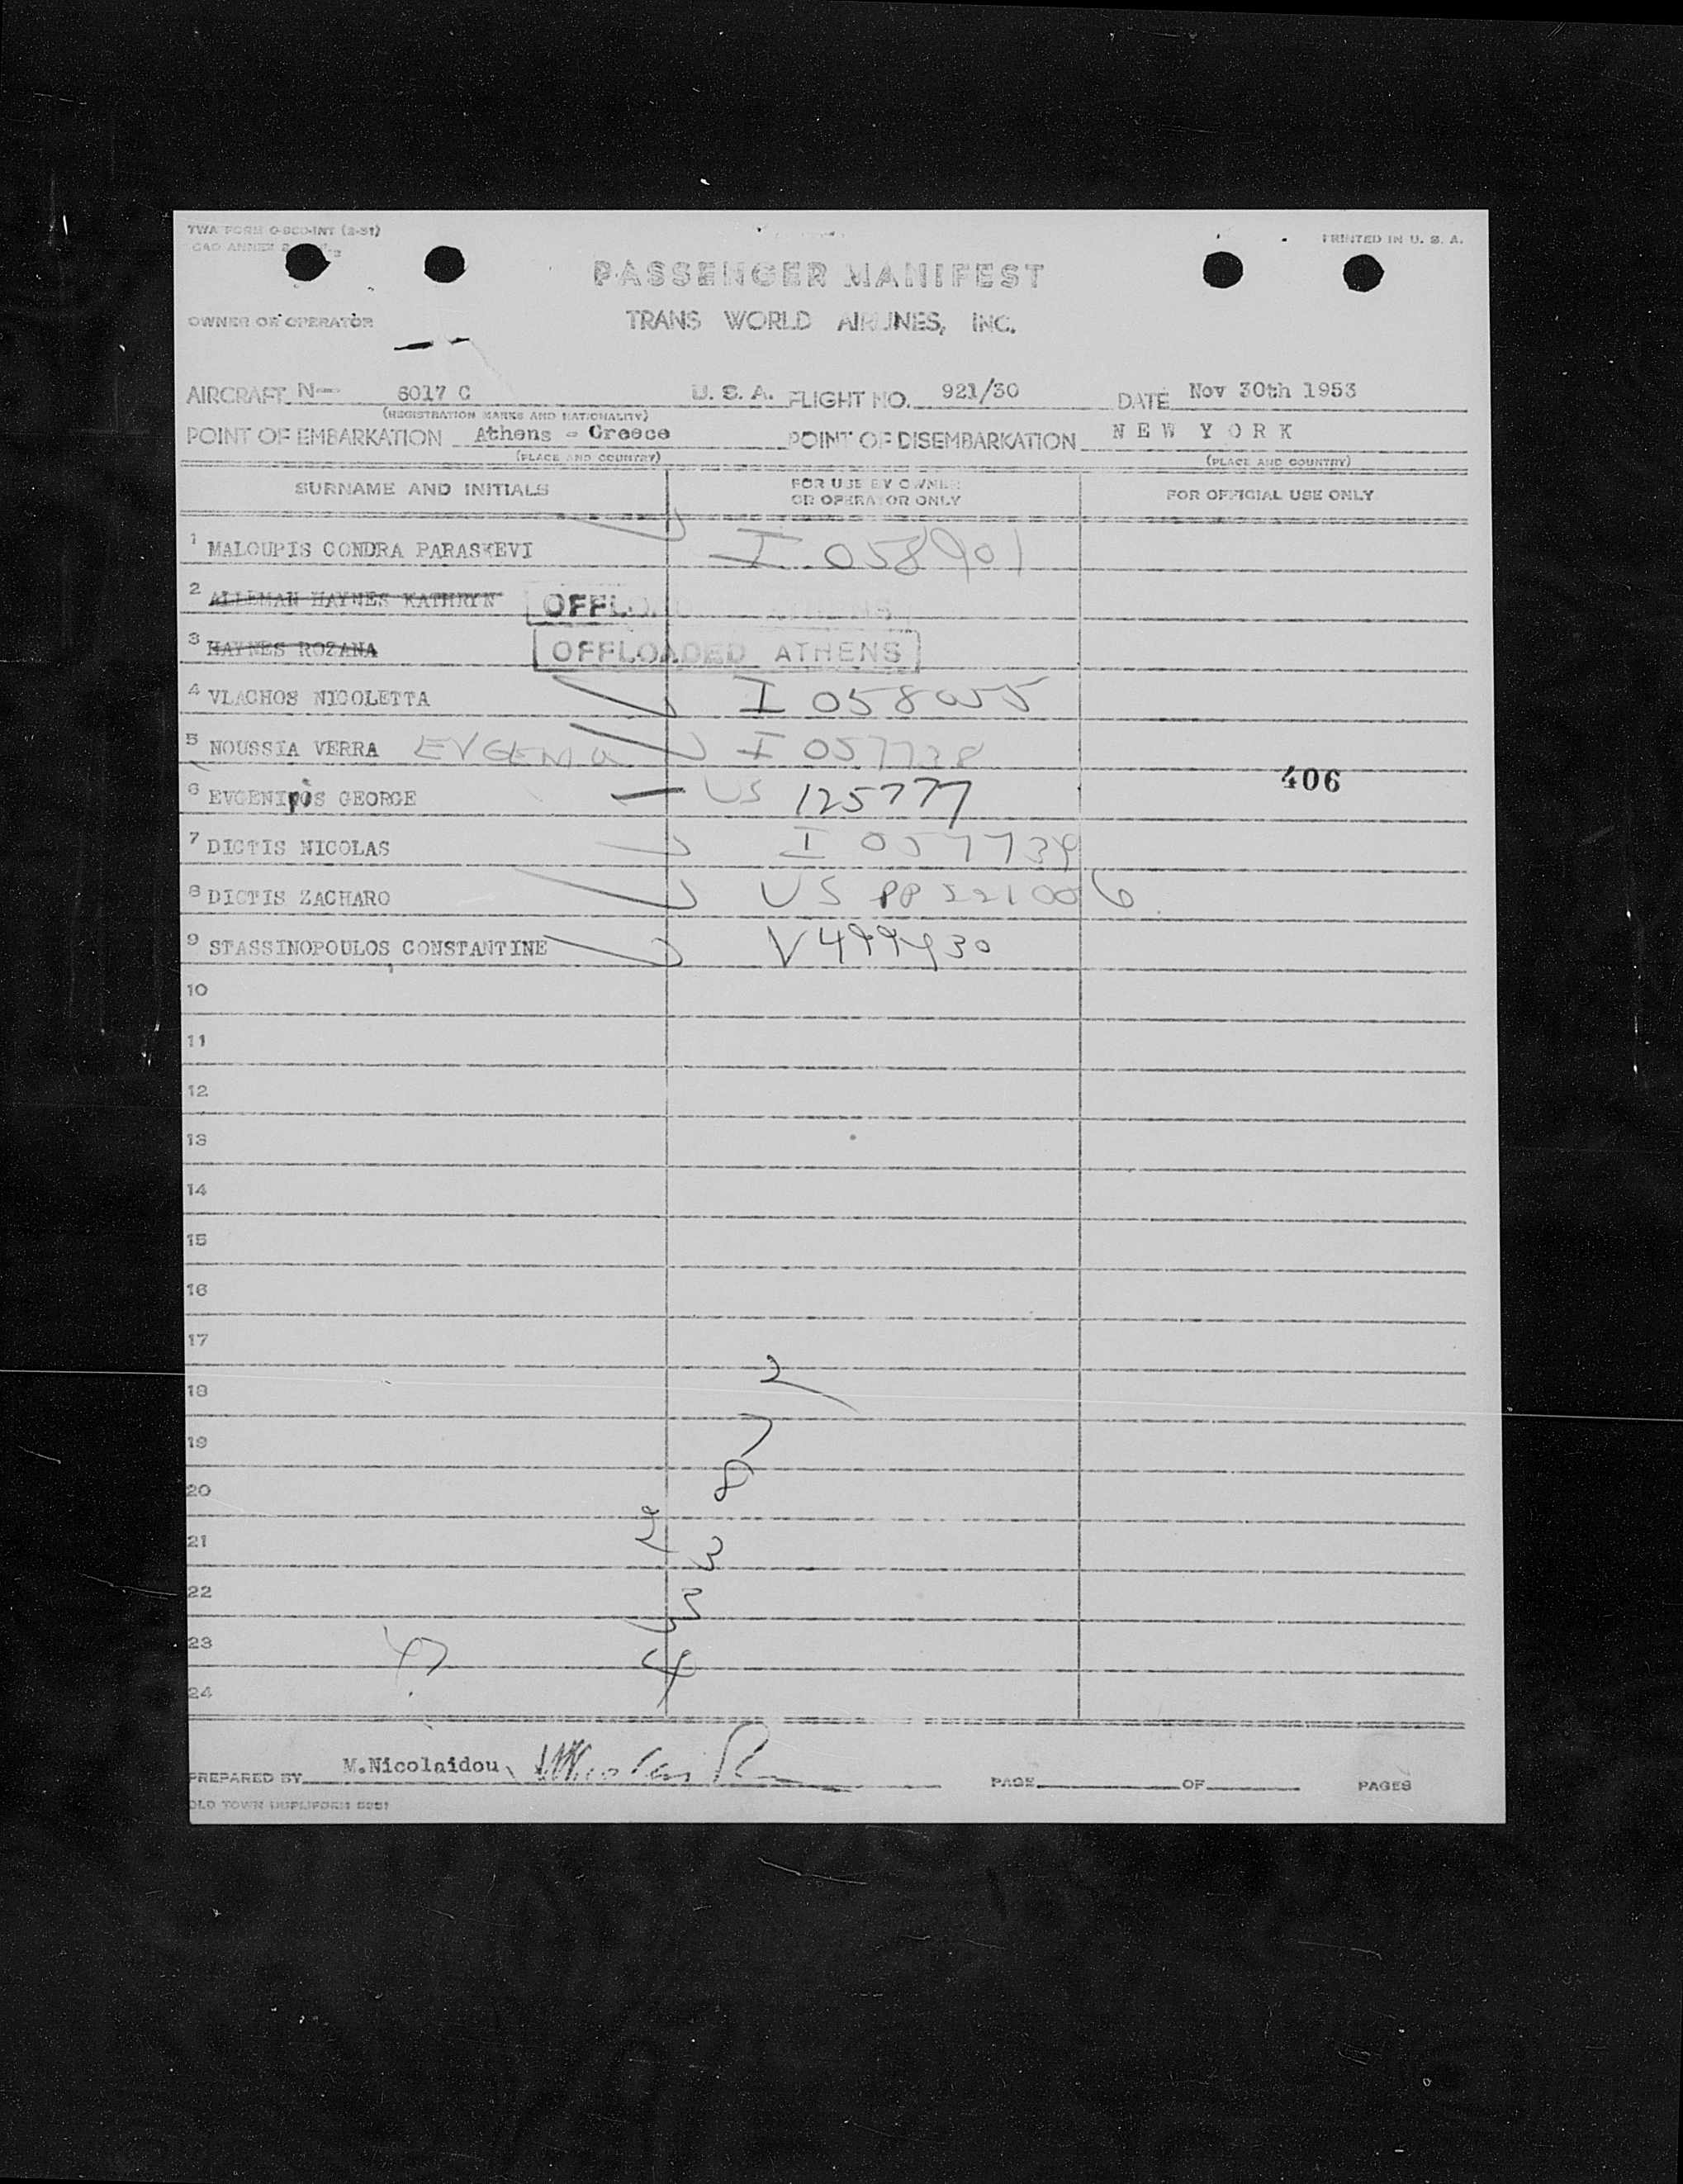 TWA FORM O-800-INT (2-51)
PRINTED IN U. S. A.
PASSENGER MANIFEST
OWNER OR OPERATOR
TRANS WORLD AIRLINES, INC.
AIRCRAFT N— 6017 C U. S. A. FLIGHT NO. 921/30 DATE Nov 30th 1953
(REGISTRATION MARKS AND NATIONALITY)
POINT OF EMBARKATION Athens - Greece POINT OF DISEMBARKATION N E W Y O R K
(PLACE AND COUNTRY) (PLACE AND COUNTRY)
SURNAME AND INITIALS FOR USE BY OWNER OR OPERATOR ONLY FOR OFFICIAL USE ONLY
1 MALOUPIS CONDRA PARASKEVI I 058901
2 ALLEMAN HAYNES KATHRYN OFFLOADED ATHENS
3 HAYNES ROZANA OFFLOADED ATHENS
4 VLACHOS NICOLETTA I 058055
5 NOUSSIA VERRA EVGENIA I 057738
406
6 EVGENIPOS GEORGE US 125777
7 DICTIS NICOLAS I 057739
8 DICTIS ZACHARO US PP 221006
9 STASSINOPOULOS CONSTANTINE V499930
10
11
12
13
14
15
16
17
2
18
7
19
8
20
2
21
3
22
3
23
47 4
24
PREPARED BY M.Nicolaidou PAGE OF PAGES
OLD TOWN DUPLIFORM